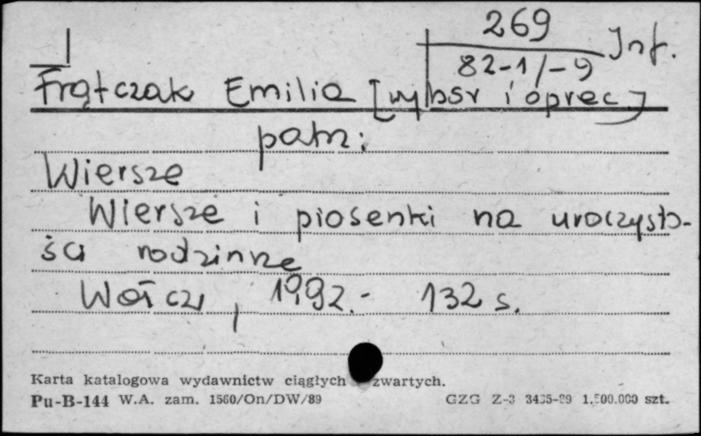 269
82-1/-9 Inf.
Frątczak Emilia [wybór i oprac]
patrz:
Wiersze
Wiersze i piosenki na uroczysto-
ści rodzinne
Wołcz, 1992.- 132 s.
Karta katalogowa wydawnictw ciągłych zwartych.
Pu-B-144 W.A. zam. 1560/On/DW/89 GZG Z-3 1.500.000 szt.